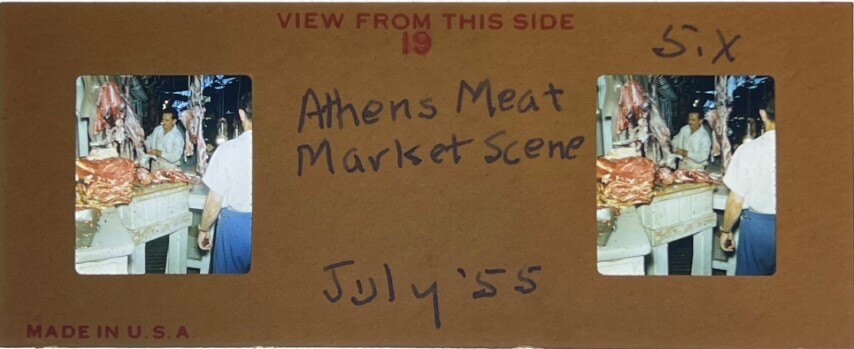 VIEW FROM THIS SIDE
19
Six
Athens Meat
Market Scene
July '55
MADE IN U.S.A.